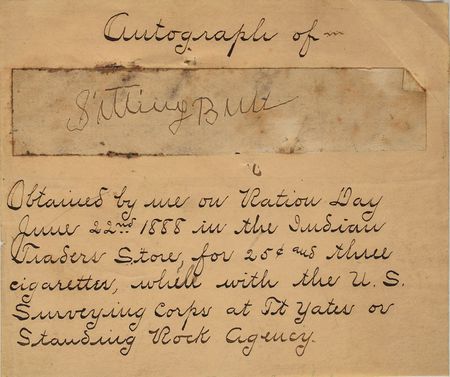 Autograph of
Sitting Bull
Obtained by me on Ration Day
June 22nd 1888 in the Indian
Traders Store, for 25¢ and three
cigarettes, while with the U. S.
Surveying Corps at Ft Yates or
Standing Rock Agency.